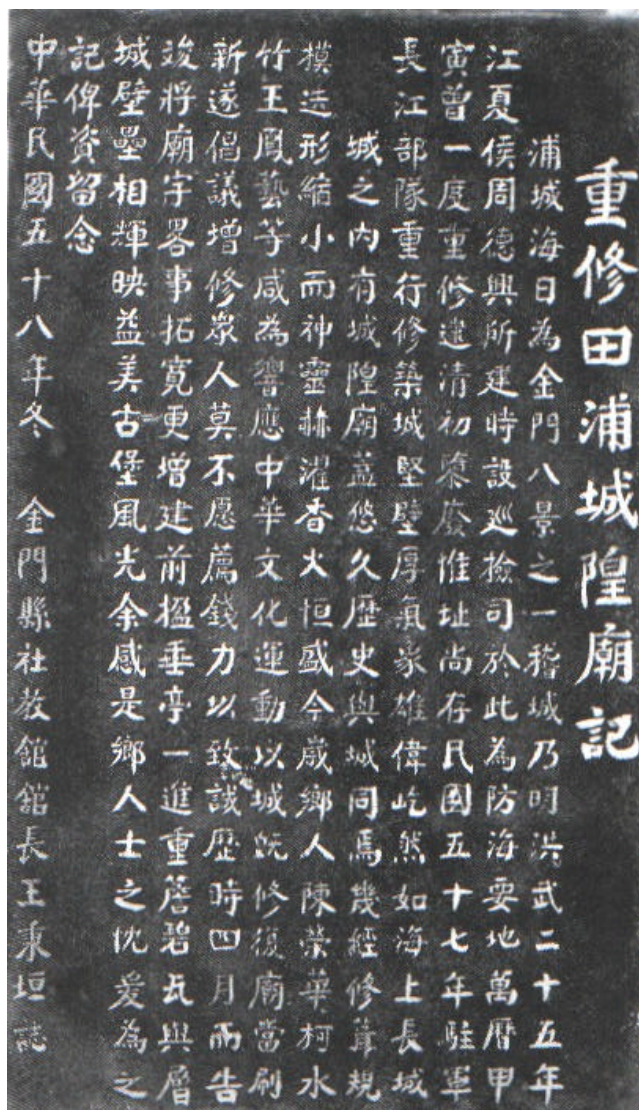 重修田浦城隍廟記
浦城海日為金門八景之一稽城乃明洪武二十五年
江夏侯周德興所建時設巡撿司於此為防海要地萬曆甲
寅曾一度重修逮清初隳廢惟址尚存民國五十七年駐軍
長江部隊重行修築城堅壁厚氣象雄偉屹然如海上長城
城之內有城隍廟盖悠久歷史與城同焉幾經修葺規
模迭形縮小而神靈赫濯香火恒盛今歲鄉人陳榮華柯水
竹王鳳藝等咸為響應中華文化運動以城既修復廟當刷
新遂倡議增修眾人莫不愿薦錢力以致誠歷時四月而告
竣將廟宇畧事拓寬更增建前楹垂亭一進重簷碧瓦與層
城壁壘相輝映益美古堡風光余感是鄉人士之忱爰為之
記俾資留念
中華民國五十八年冬 金門縣社教館舘長王秉垣誌